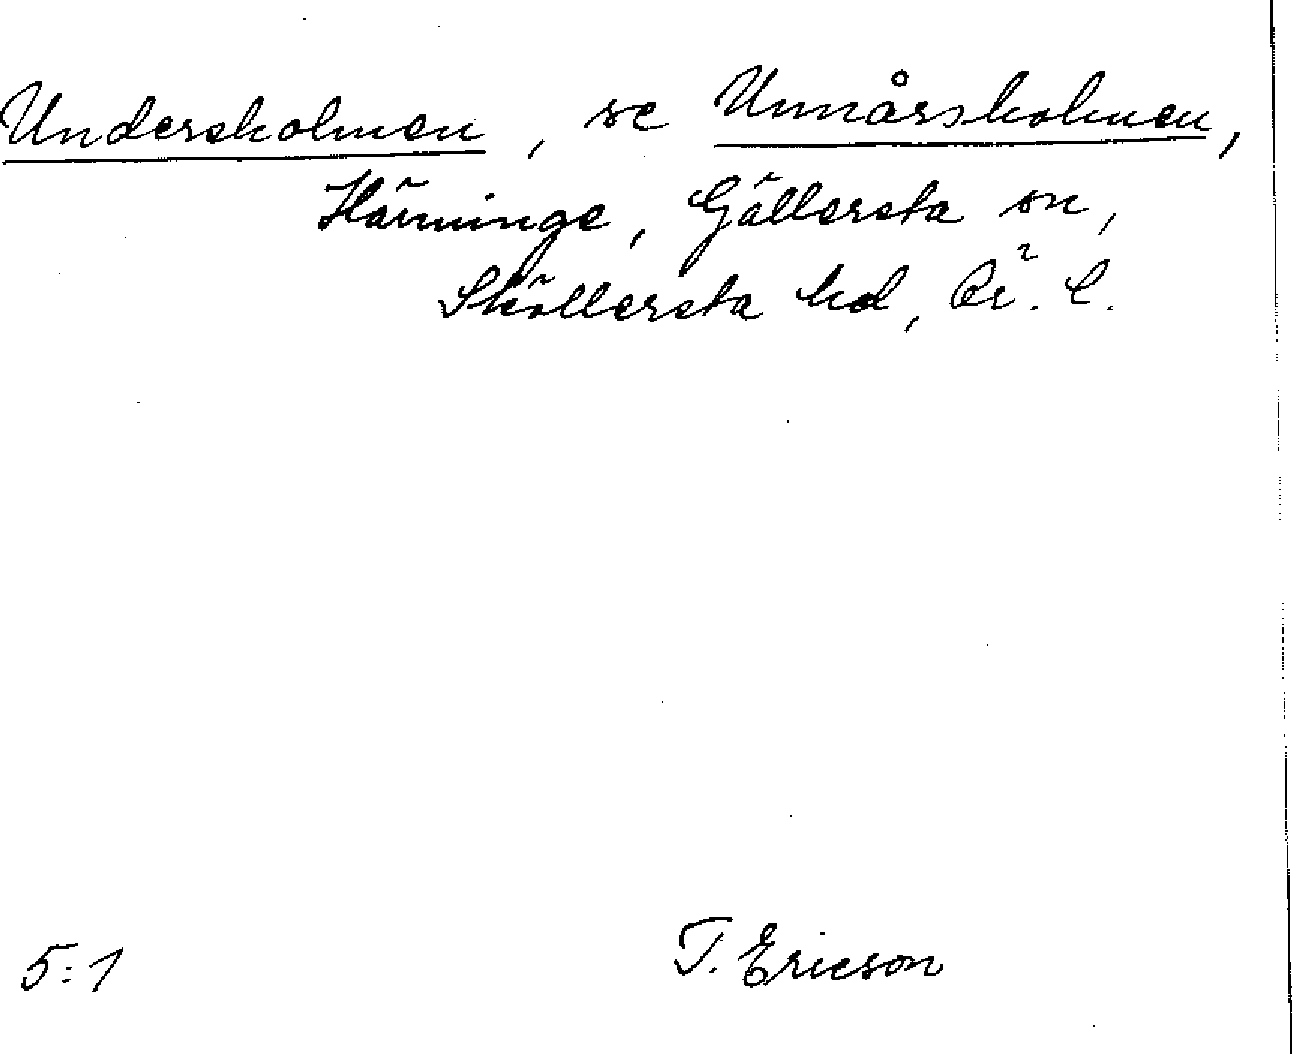 Undersholmen, se Unnårsholmen,
Härminge, Gällersta sn,
Sköllersta hd, Ör. l.
5:1
T. Ericson